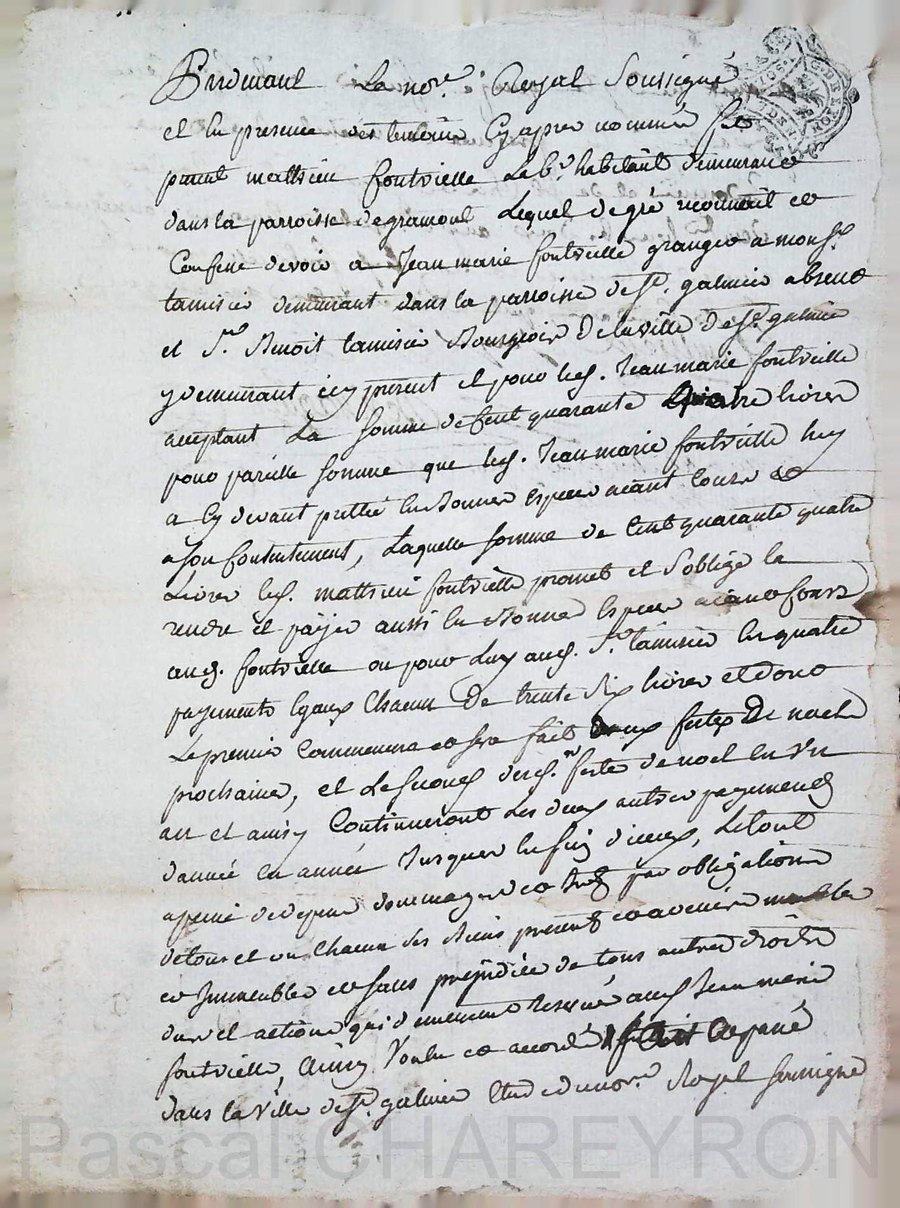 Pardevant Le no.re Royal Soussigné
et En presence des temoins Cy apres nommés fut
pnt mathieu fontvielle Le b.r habitant demeurant
dans la parroisse degramont Lequel de gré reconnait et
Confesse devoir a Jean marie fontvielle granger a mons.r
tamisier demeurant dans la parroisse de S.t galmier absent
et S.r Benoit tamisier Bourgeois de la ville de S.t galmier
y demeurant icy present et pour led. Jean marie fontvielle
acceptant La somme de Cent quarante quatre livres
pour pareille somme que led. Jean marie fontvielle luy
a Cy devant pretté En Bonnes Especes aiant Cours et
a son Contentement, Laquelle somme de Cent quarante quatre
Livres led. mathieu fontvielle promet et S'oblige de
rendre et payer aussi En Bonnes Especes aiant Cours
aud. fontvielle ou pour Luy aud. S.r tamisier En quatre
payements Egaux Chacun De trente Six livres et dont
Le premier Commencera et sera fait aux festes De noel
prochaines, et Le second desd. festes de noel En un
an et ainsy Continueront Les deux autres payements
d'année En année Jusques En fin d'iceux, Le tout
a peine de depens dommages et par obligation
de tous et un Chacun Ses Biens presents et avenir meubles
et Immeubles et sans prejudice de tous autres droits
dus et actions qui demeurent reservés aud. Jean marie
fontvielle, Ainsy Voulu et accordé fait et passé
dans la ville de S.t galmier Etude du no.re Royal soussigné
Pascal CHAREYRON